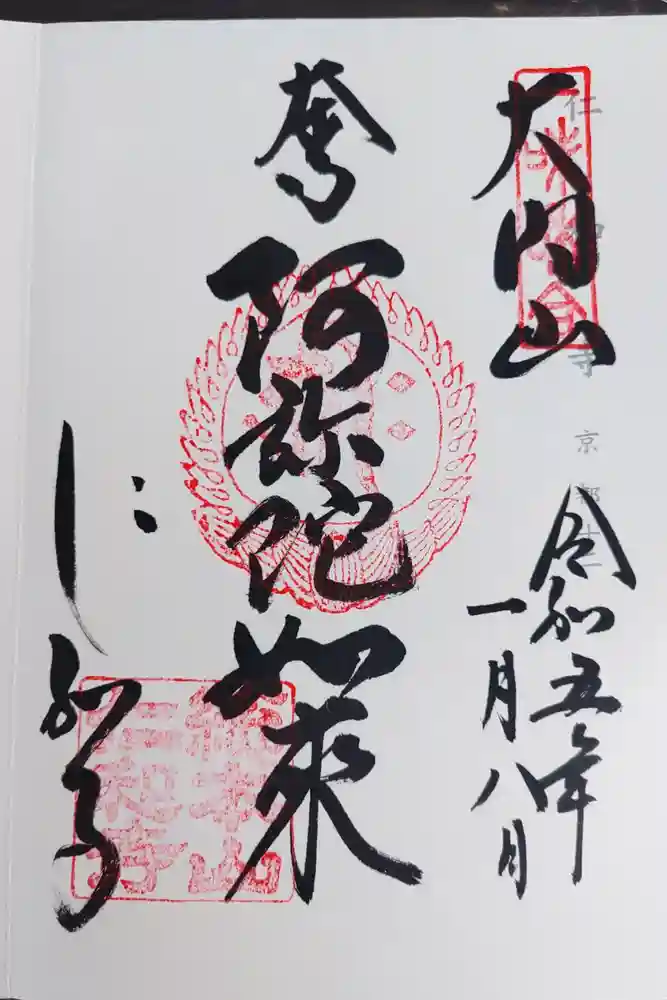 大内山
令和五年
一月八日
奉
阿弥陀如来
仁和寺
総本山
仁和寺
仁和寺 京都